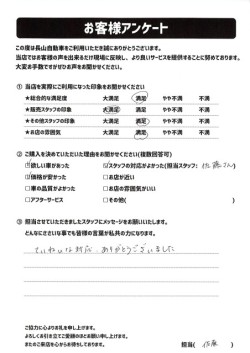 お客様アンケート
この度は長山自動車をご利用いただき誠にありがとうございます。
当店ではお客様の声を出来るだけ現場に反映し、より良いサービスを提供することに努めております。
大変お手数ですがぜひお声をお聞かせください
① 当店を実際にご利用になった印象をお聞かせください
★総合的な満足度 大満足 満足 やや不満 不満
★販売スタッフの印象 大満足 満足 やや不満 不満
★その他スタッフの印象 大満足 満足 やや不満 不満
★お店の雰囲気 大満足 満足 やや不満 不満
② ご購入を決めていただいた理由をお聞かせください(複数回答可)
☑欲しい車があった ☑スタッフの対応がよかった(担当スタッフ: 佐藤さん)
☑価格が安かった □お店が近い
□車の品質がよかった □お店の雰囲気がいい
□アフターサービス □その他( )
③ 担当させていただきましたスタッフにメッセージをお願いいたします。
どんなにささいな事でも皆様の言葉が私共の力になります。
ていねいな対応、ありがとうございました
ご協力に心よりお礼を申し上げます。
よろしくお引き立てご愛顧のほどお願い申し上げます。
またのご来店を心からお待ちしております。 担当( 佐藤 )